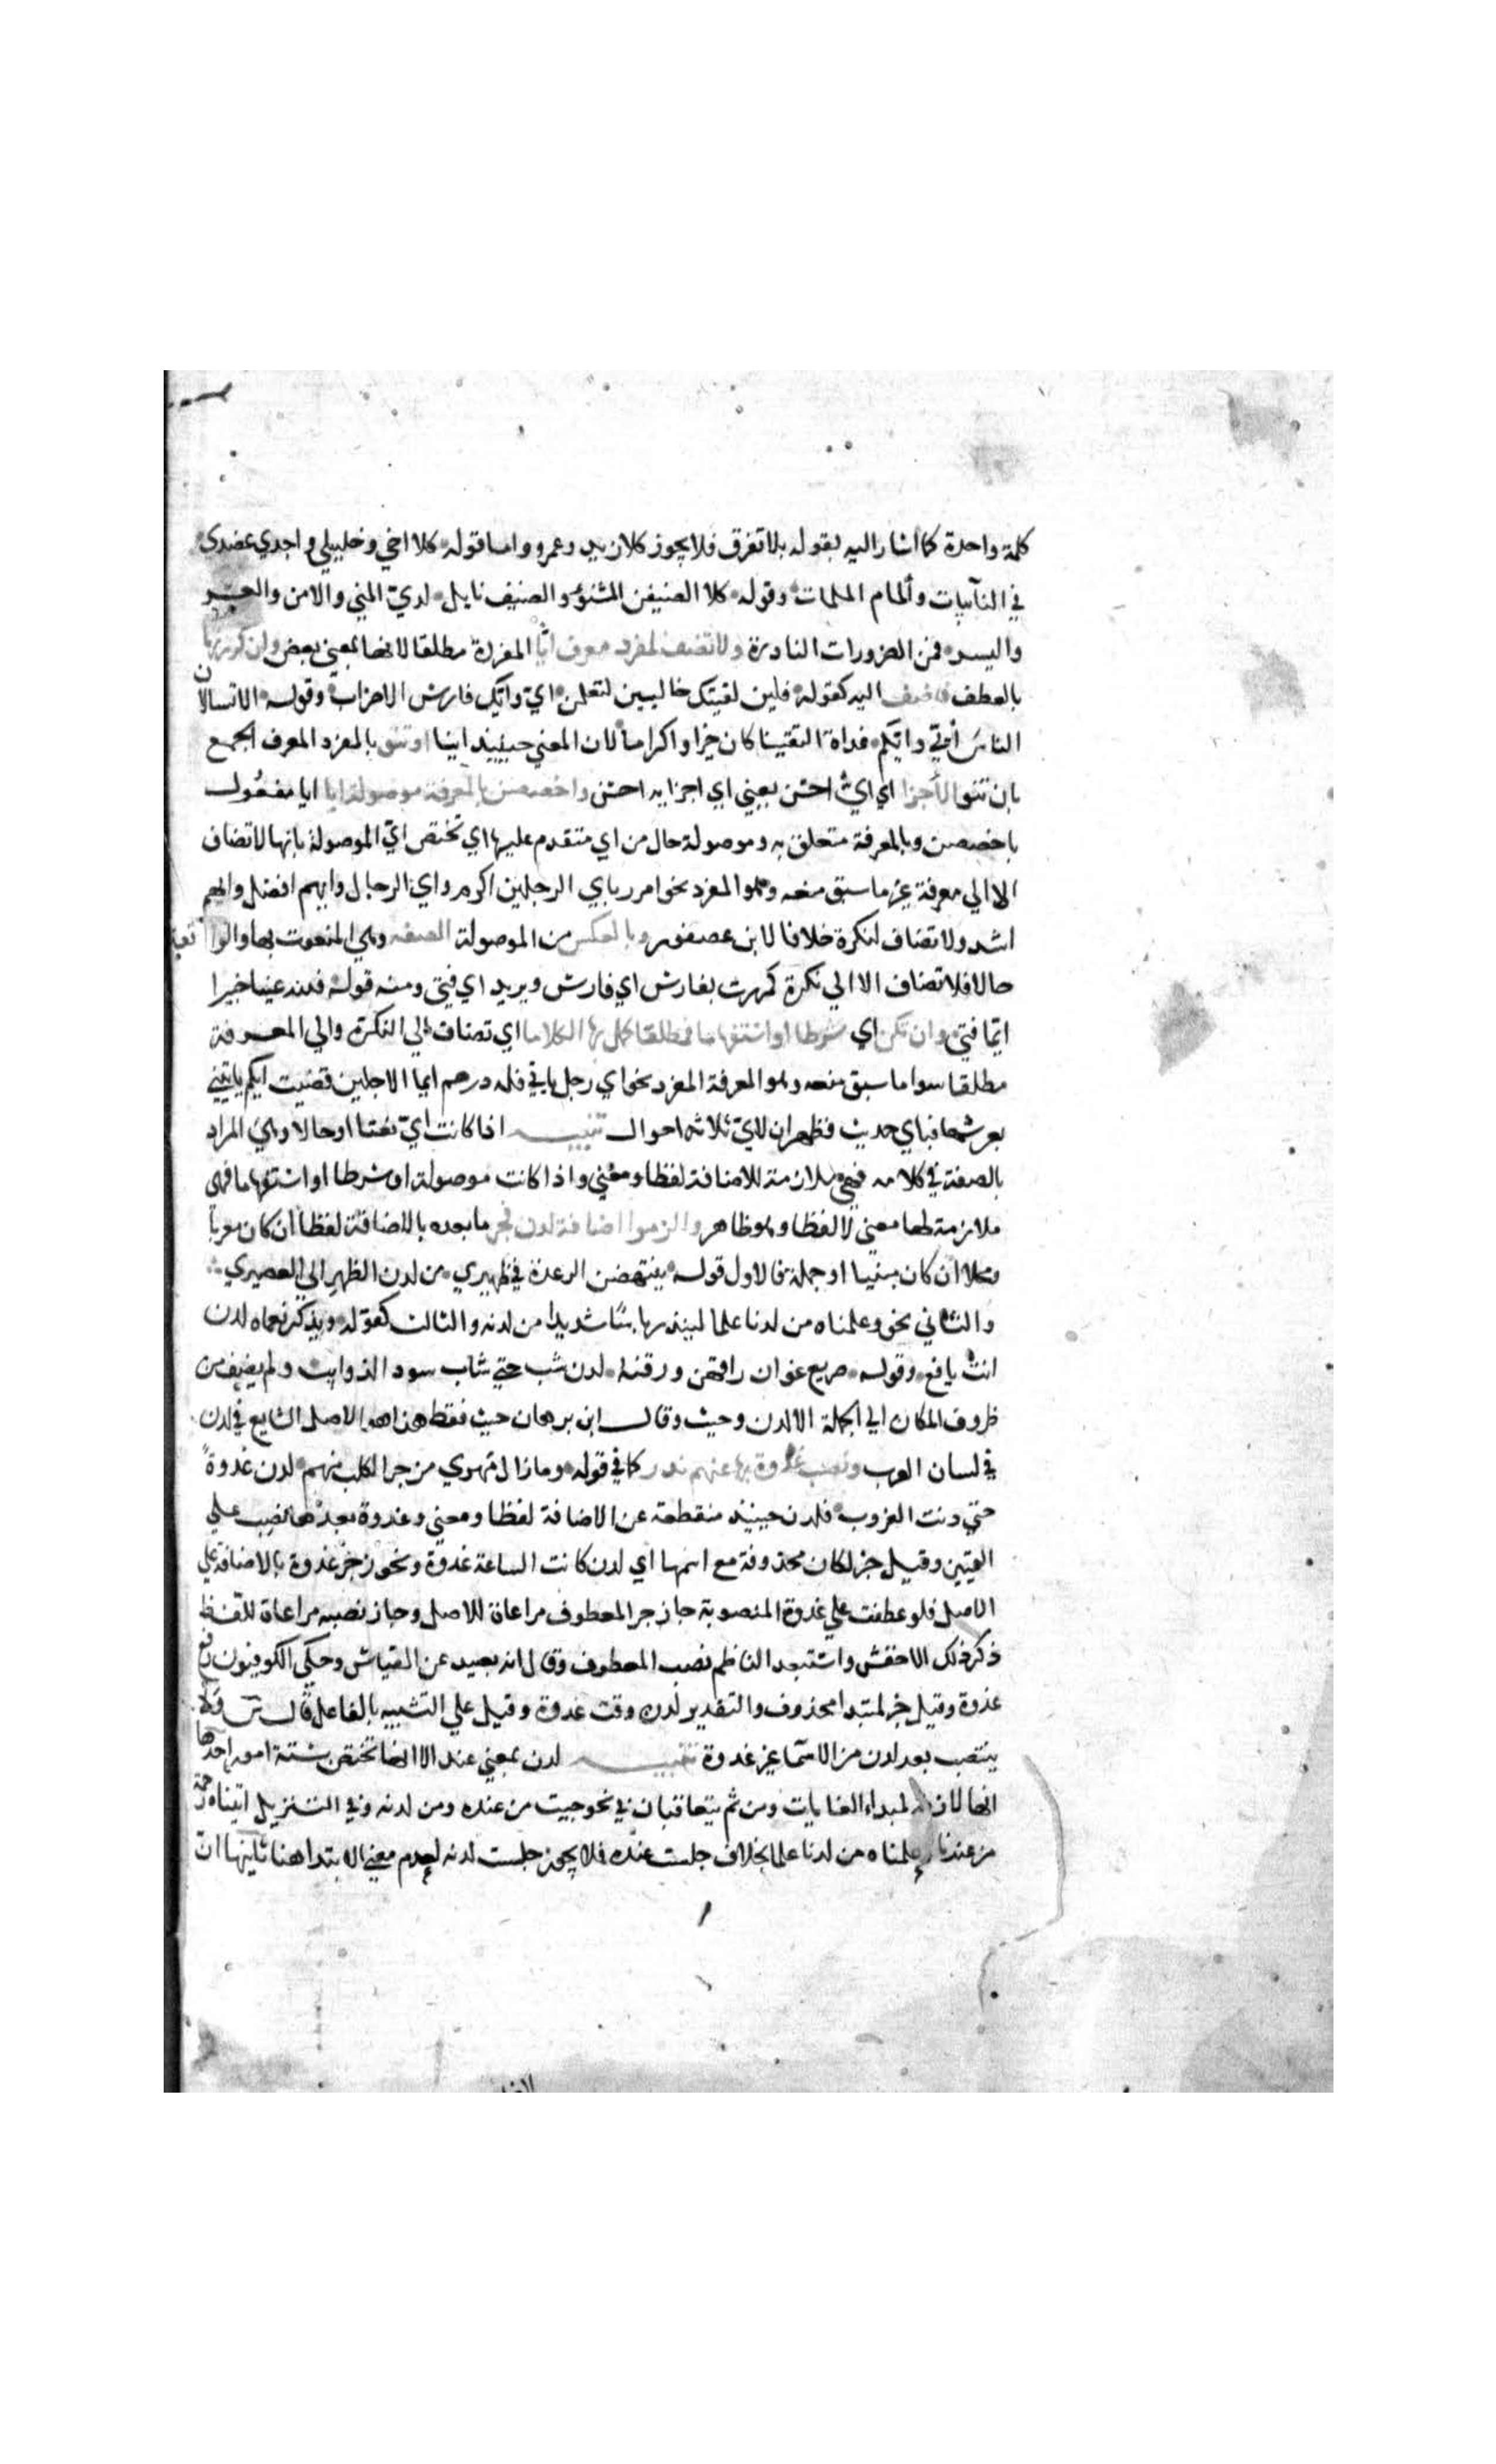 كلمة واحدة كما اشار اليه بقوله بلا تفرق فلا يجوز كلا زيد وعمرو واما قوله كلا اخي وخليلي واجدي عضدي
في النآيبات وألمام الملمات وقوله كلا الضيفن المشنوء والضيف نايل لدي المني والامن والعسر
واليسر فمن الضرورات النادرة ولا تضف لمفرد معرف ايّا المفردة مطلقا لانها بمعني بعض وان كررتها
بالعطف فاضف اليه كقوله فلين لقيتك خاليين لتعلمن ايي وايّك فارس الاحزاب وقوله الا تسالان
الناسَ أيّي وايّكم غداة التقينا كان خيرا واكراما لان المعني حينيذ اينا او تنو بالمفرد المعرف الجمع
بان تنو الأجزا اي ايّ احسن يعني اي اجزايه احسن واخصصن بالمعرفة موصولة ايا ايا مفعُول
باخصصن وبالمعرفة متعلق به وموصولة حال من اي متقدم عليها اي تختص ايّ الموصولة بانها لا تضاف
الا الي معرفة غير ما سبق منعه وهو المفرد نحو امرر باي الرجلين اكرم واي الرجال وايهم افضل وايهم
اشد ولا تضاف لنكرة خلافا لابن عصفور وبالعكس من الموصولة الصفه وهي المنعوت بها والواقعة
حالا فلا تضاف الا الي نكرة كمررت بفارس اي فارس وبزيد اي فتي ومنه قوله فلله عينا خبيرا
ايّما فتي وان تكن اي شرطا او استفهاما فمطلقا كمل بها الكلاما اي تضاف الي النكرة والي المعرفة
مطلقا سوا ما سبق منعه وهو المعرفة المفرد نحو اي رجل ياتي فله درهم ايما الاجلين قضيت ايكم ياتيني
بعرشها فباي حديث فظهر ان لايّ ثلاثه احوال تنبيه اذا كانت ايّ نعتا او حالا وهي المراد
بالصفة في كلامه فهي ملازمة للاضافة لفظا ومعني واذا كانت موصولة او شرطا او استفهاما فهي
ملازمة لها معني لا لفظا وهو ظاهر والزموا اضافة لدن فجر ما بعده بالاضافة لفظا ان كان معربا
ومحلا ان كان مبنيا او جملة فالاول قوله ينتهض الرعدة في ظهيري من لدن الظهر الي العصيري
والثاني نحو وعلمناه من لدنا علما لينذر باسًا شديدا من لدنه والثالث كقوله وتذكر نعماه لدن
انت يافع وقوله صريع غوان راقهن ورقنه لدن شب حتي شاب سود الذوايب ولم يضف من
ظروف المكان الي الجملة الا لدن وحيث وقال ابن برهان حيث فقط هذا هو الاصل الشايع في لدن
في لسان العرب ونصب غدوة بها عنهم ندر كما في قوله وما زال مهري مزجر الكلب منهم لدن غدوةً
حتي دنت لغروب فلدن حينيذ منقطعة عن الاضافة لفظا ومعني وغدوة بعدها نصب علي
التمييز وقيل خبر لكان محذوفة مع اسمها اي لدن كانت الساعة غدوة ويجوز جرّ غدوة بالاضافة علي
الاصل فلو عطفت علي غدوة المنصوبة جاز جر المعطوف مراعاة للاصل وجاز نصبه مراعاة للفظ
ذكر ذلك الاخفش واستبعد الناظم نصب المعطوف وقال انه بعيد عن القياس وحكي الكوفيون رفع
غدوة وقيل خبر لمبتدا محذوف والتقدير لدن وقت غدوة وقيل علي التشبيه بالفاعل قال س ولا
ينتصب بعد لدن من الاسما غير غدوة تنبيه لدن بمعني عند الا انها تختص بستة امور احدها
انها لملازمة لمبداء الغايات ومن ثم يتعاقبان في نحو جيت من عنده ومن لدنه وفي التنزيل اتيناه رحمة
من عندنا وعلمناه من لدنا علما بخلاف جلست عنده فلا يجوز جلست لدنه لعدم معني الابتدا هنا ثانيها ان